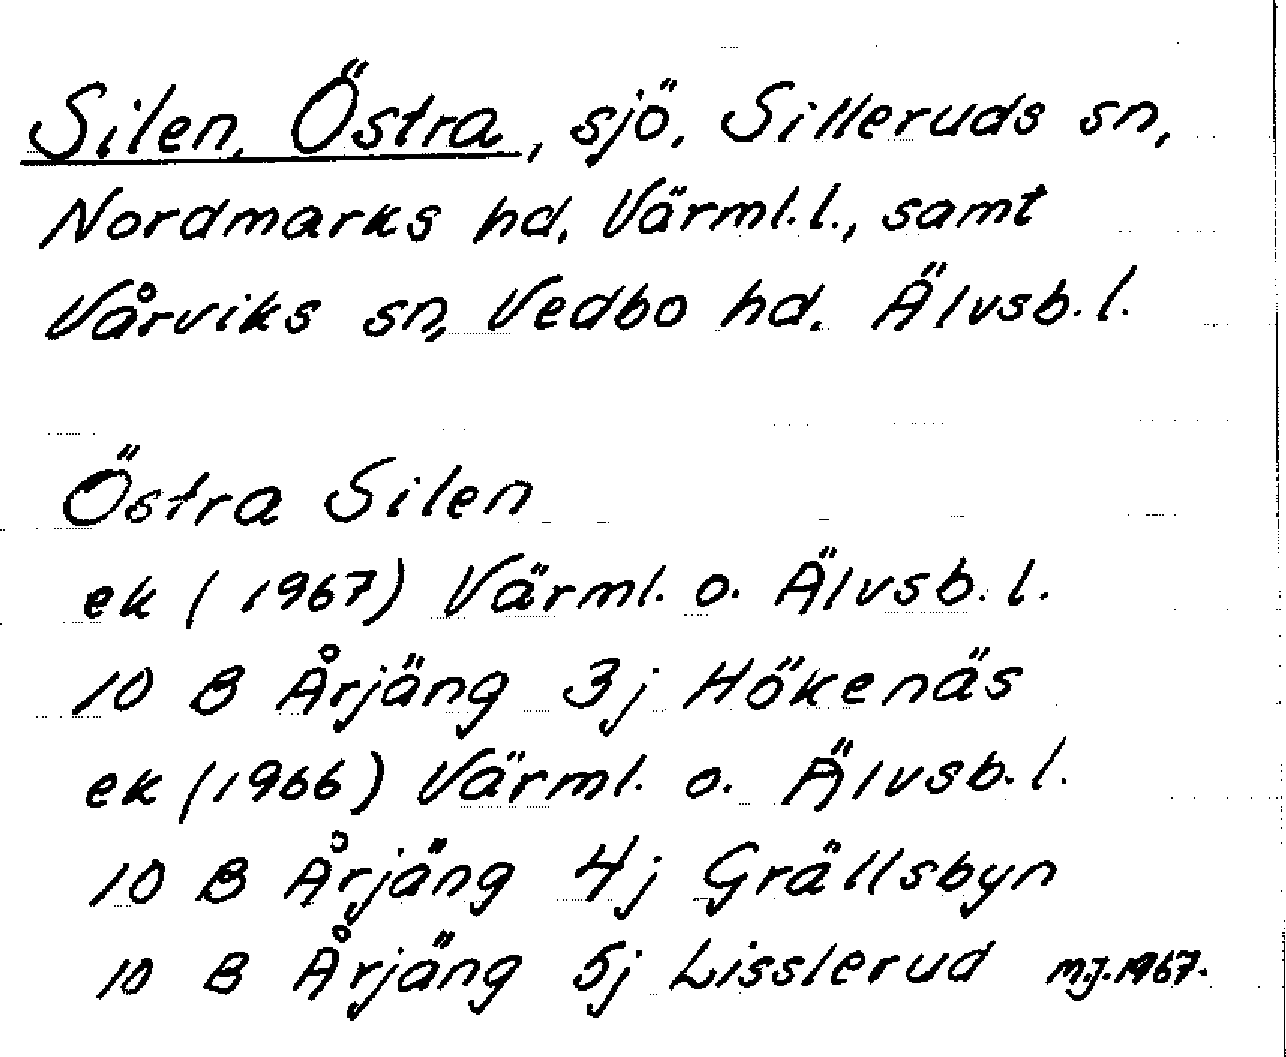 Silen, Östra, sjö, Silleruds sn,
Nordmarks hd, Värml.l., samt
Vårviks sn, Vedbo hd. Älvsb.l.
Östra Silen
ek (1967) Värml. o. Älvsb. l.
10 B Årjäng 3j Hökenäs
ek (1966) Värml. o. Älvsb. l.
10 B Årjäng 4j Grällsbyn
10 B Årjäng 5j Lisslerud mj. 1967.